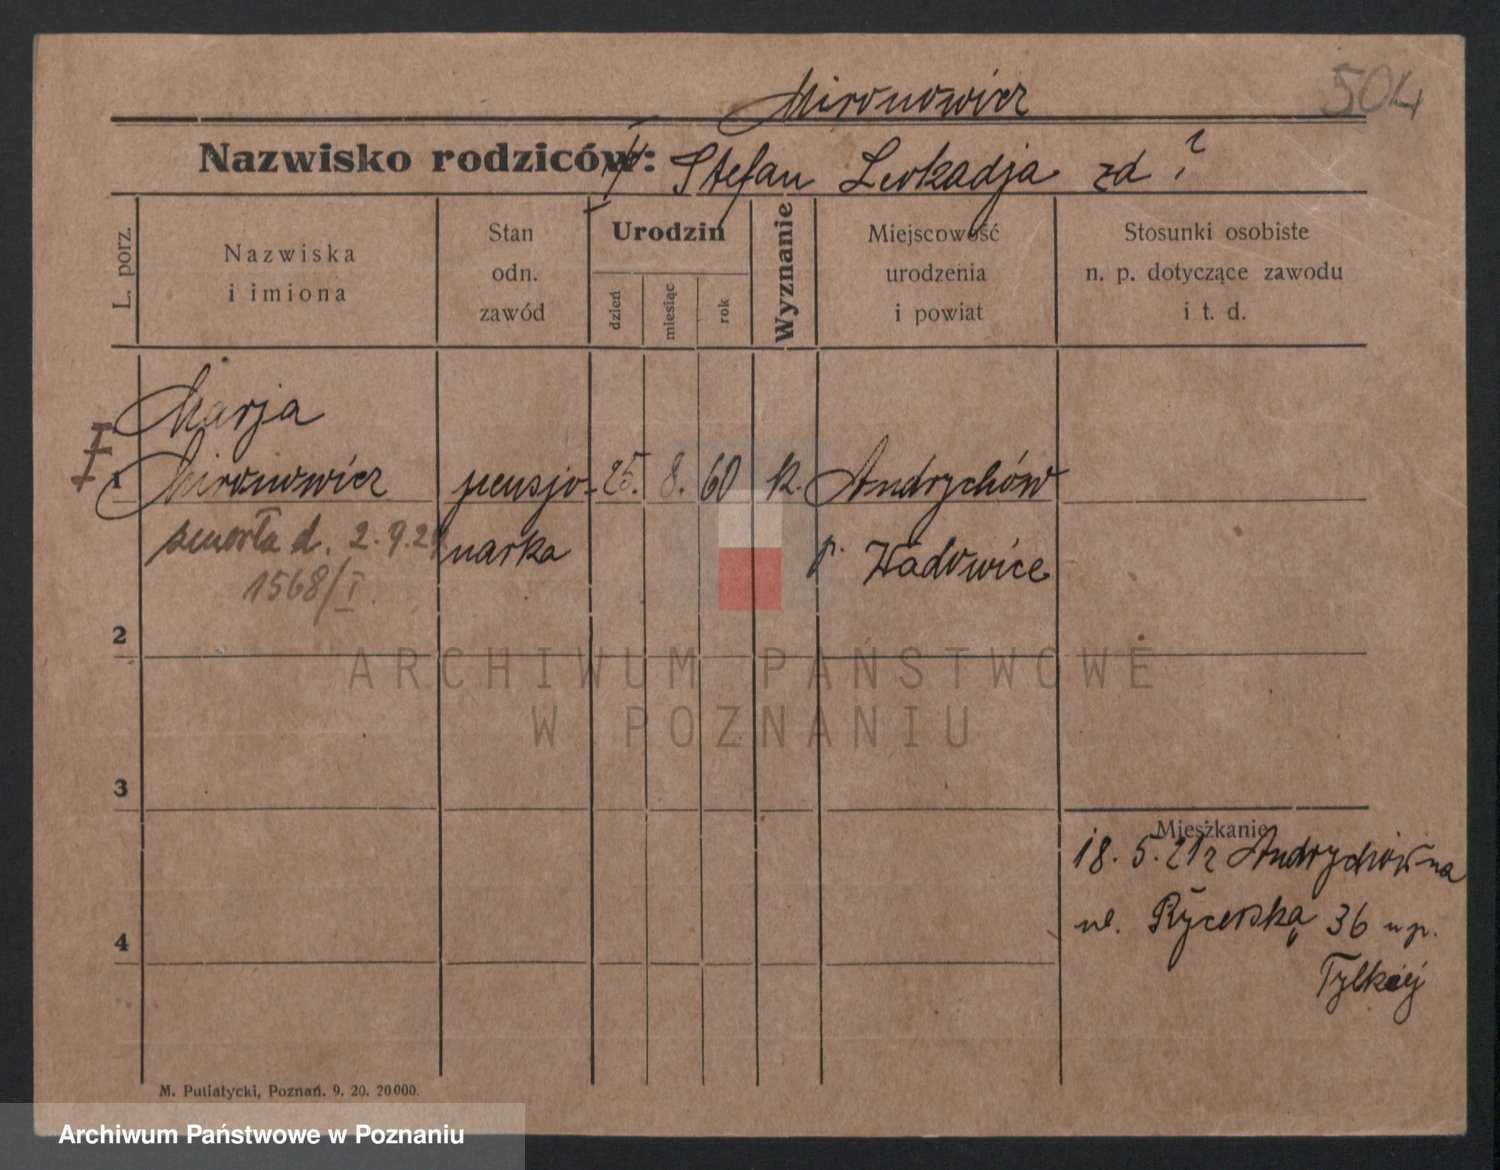 504
Mironowicz
Nazwisko rodziców: Stefan Leokadja zd ?
L. porz.
Nazwiska
i imiona
Stan
odn.
zawód
Urodzin
dzień
miesiąc
rok
Wyznanie
Miejscowość
urodzenia
i powiat
Stosunki osobiste
n. p. dotyczące zawodu
i t. d.
Marja
1 Mironowicz pensjo- 25. 8. 60 k. Andrychów
zmarła d. 2.9.21 narka p. Wadowice
1568/I
2
3
4
Mieszkanie
18. 5. 21 z Andrychowa na
ul. Rycerską 36 u p.
Tylkiej
M. Putiatycki, Poznań. 9. 20. 20000.
ARCHIWUM PAŃSTWOWE
W POZNANIU
Archiwum Państwowe w Poznaniu